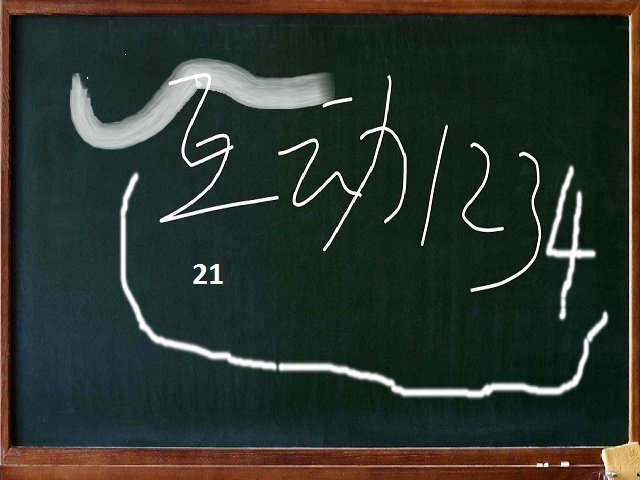 互动1234
21